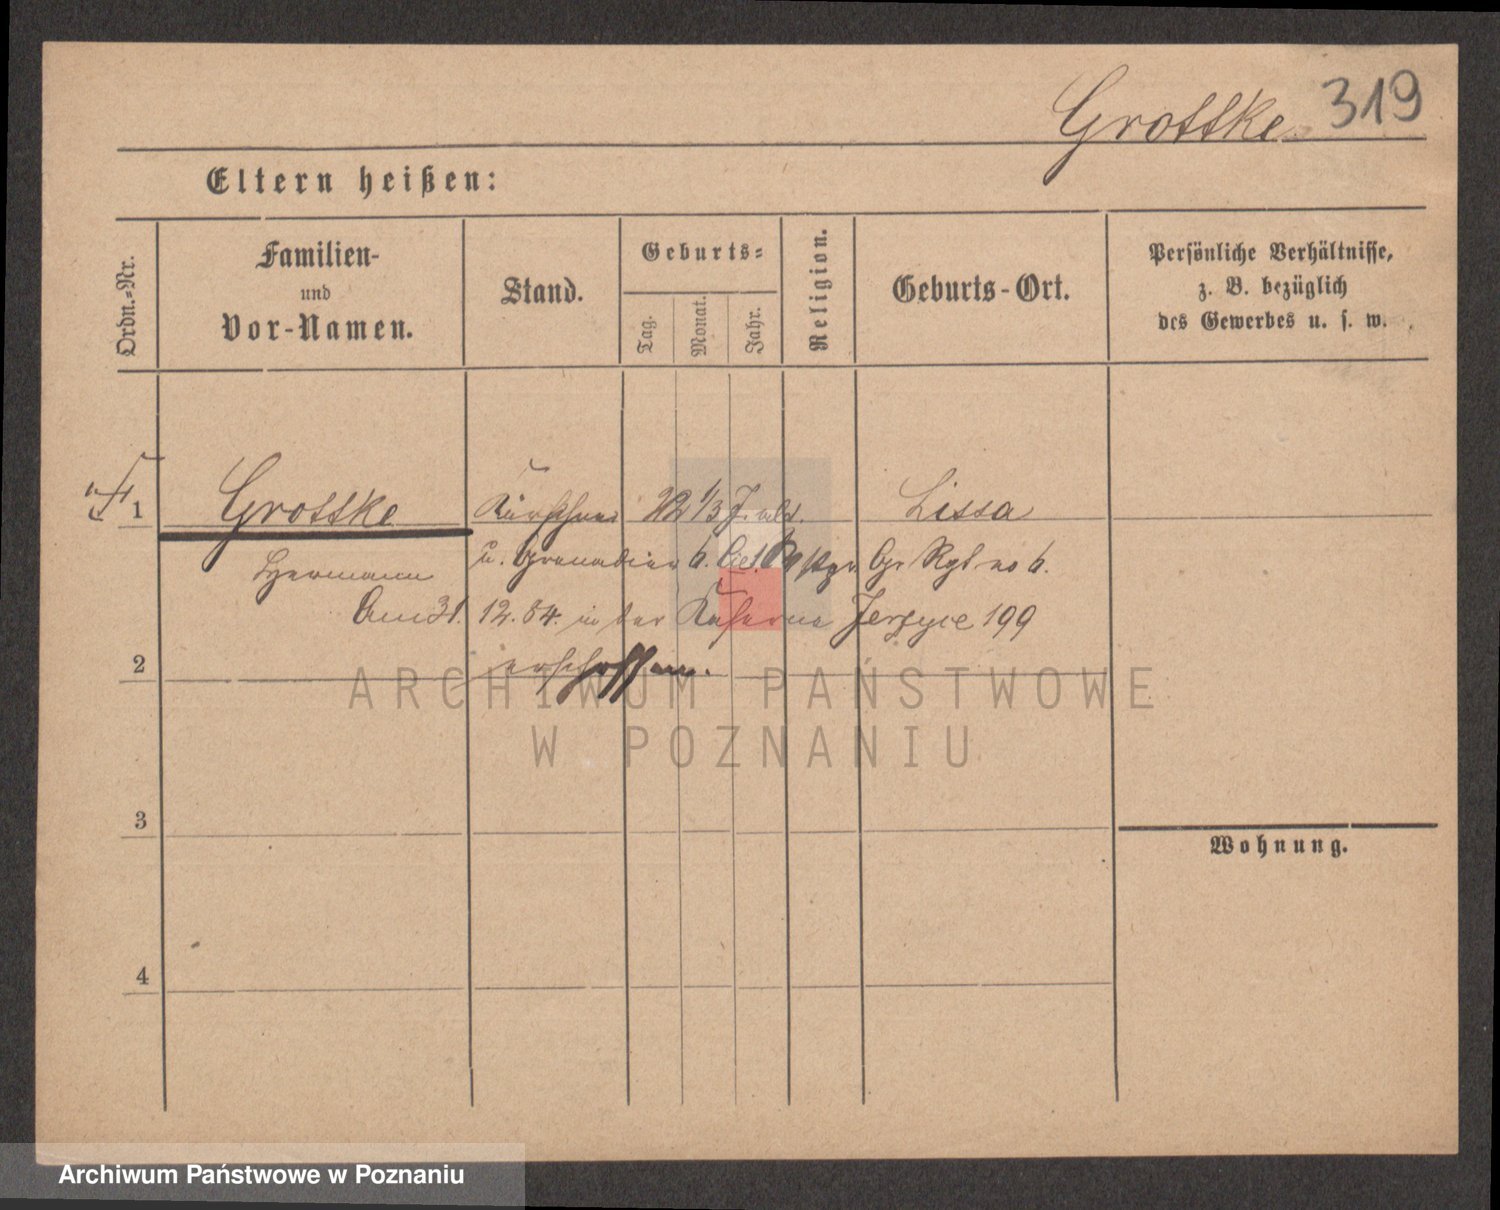 Grottke 319
Eltern heißen:
Ordn.-Nr.
Familien-
und
Vor-Namen.
Stand.
Geburts-
Tag.
Monat.
Jahr.
Religion.
Geburts-Ort.
Persönliche Verhältnisse,
z. B. bezüglich
des Gewerbes u. s. w.
1 Grottke Kürschner 22 1/3 J. alt. Lissa
Hermann u. Grenadier 6. Gr Rgt no 6.
Am 31. 12. 84. in der Kaserne Jerzyce 199
2 erschossen.
3
4
Wohnung.
ARCHIWUM PAŃSTWOWE
W POZNANIU
Archiwum Państwowe w Poznaniu